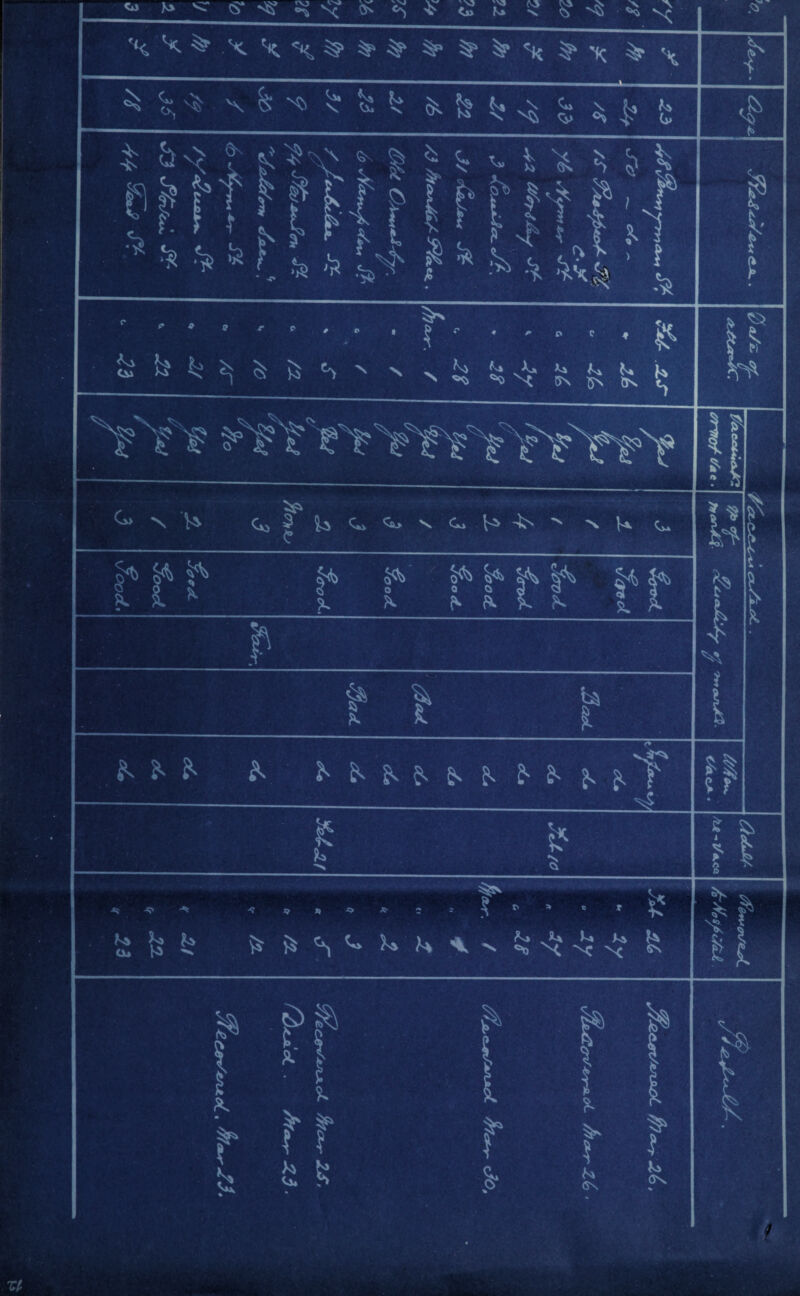 o. Sex. Age Residence. Date of attack. Vaccinated. Vaccinat'd or not Vac. No of marks. Quality of marks. When Vacc. Adult re-Vacc Removed to Hospital. Result.
17 F 23 48 Pennyman St. Feb. 25 Yes 3 Good Infancy Feb 26 Recovered Mar 26.
18 M 24 50 - do - " 26 Yes 2 Good do " 27
19 F 18 15 Prospect Pl " 26 Yes 1 Bad do " 27 Recovered Mar 26.
20 M 33 76 Hymer St " 26 Yes 1 Good do Feb 10 " 27
21 F 19 42 Worsley St " 27 Yes 4 Good do " 28
22 M 21 3 Louisa St. " 28 Yes 2 Good do Mar. 1 Recovered Mar 30.
23 M 22 31 St " 28 Yes 3 Good do "
24 M 16 13 Market Place. Mar. 1 Yes 1 Bad do " 2
25 M 21 Old Ormesby. " 1 Yes 3 Good do " 2
26 M 23 6 Hampden St. " 1 Yes 3 Bad do " 3
27 M 31 1 Jubilee St. " 5 Yes 2 Good. do Feb 21 " 5 Recovered Mar 25.
28 F 9 94 Stevenson St " 12 Yes None " 12 Died. Mar 23.
29 F 30 " 10 Yes 3 Fair. do " 12
0 F 1 6 Hymer St. " 15 No Recovered. Mar 23.
M 19 17 Queen St. " 21 Yes 2 Good do " 21
2 F 35 53 St. " 22 Yes 1 Good do " 22
3 F 18 44 Tees St. " 23 Yes 3 Good. do " 23
12